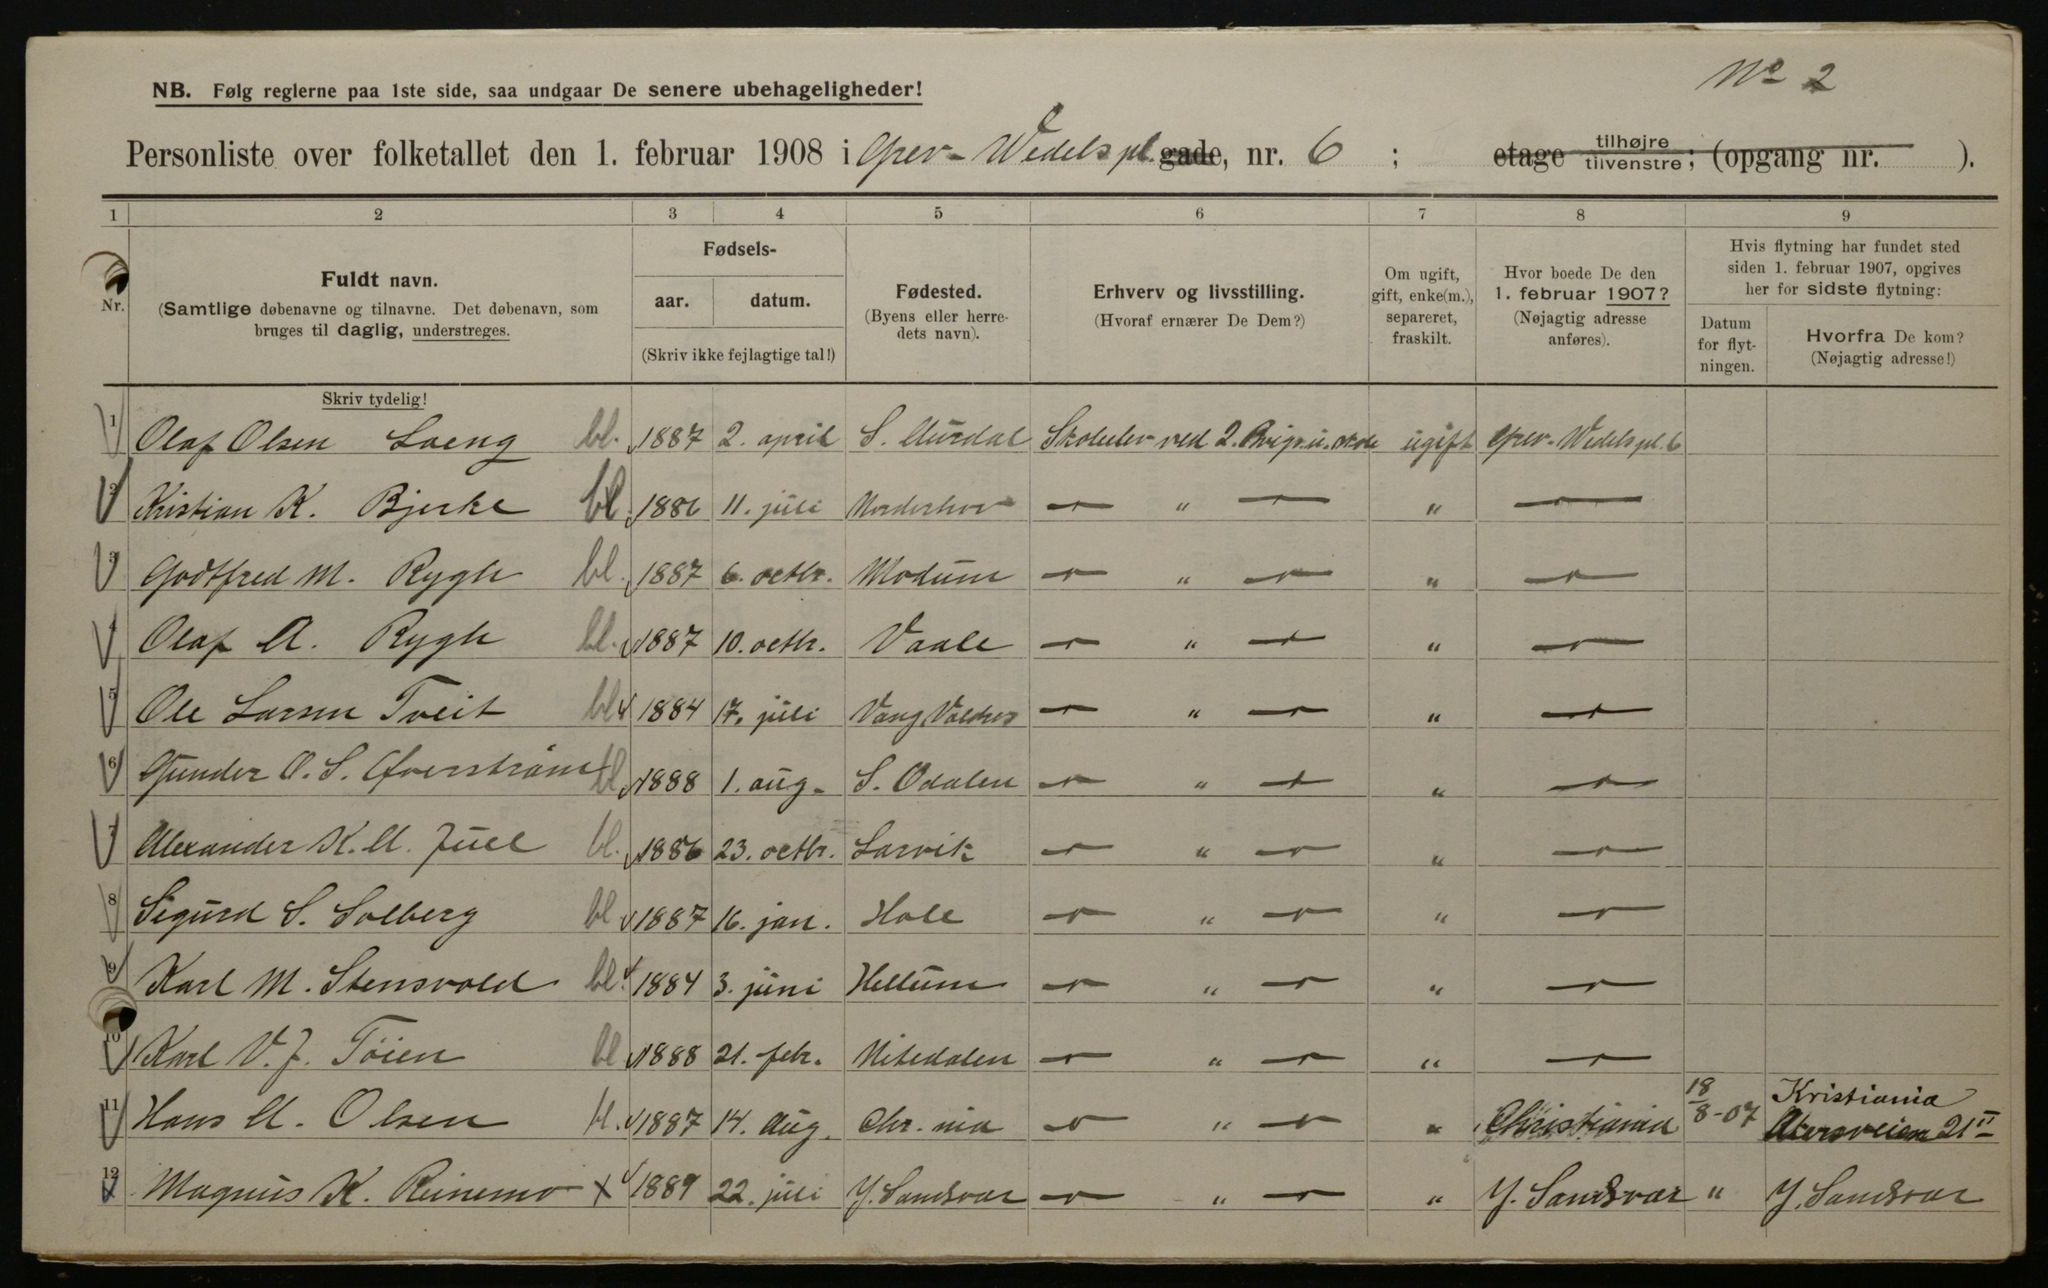 Nº 2
NB. Følg reglerne paa 1ste side, saa undgaar De senere ubehageligheder!
Personliste over folketallet den 1. februar 1908 i Grev-Wedels pl. gade, nr. 6 ; etage tilhøjre tilvenstre; (opgang nr. ).
1 2 3 4 5 6 7 8 9
Nr. Fuldt navn. (Samtlige døbenavne og tilnavne. Det døbenavn, som bruges til daglig, understreges.
Fødsels- aar. datum. (Skriv ikke fejlagtige tal!)
Fødested. (Byens eller herredets navn).
Erhverv og livsstilling. (Hvoraf ernærer De Dem?)
Om ugift, gift, enke(m.), separeret, fraskilt.
Hvor boede De den 1. februar 1907? (Nøjagtig adresse anføres).
Hvis flytning har fundet sted siden 1. februar 1907, opgives her for sidste flytning:
Datum for flytningen. Hvorfra De kom? (Nøjagtig adresse!)
Skriv tydelig!
1 Olaf Olsen Loeng bl. 1887 2. april S. Aurdal Skoleelev ved 2. Brig. u. skole ugift Grev-Wedels pl. 6
2 Kristian K. Bjerke bl. 1886 11. juli Norderhov " "
3 Godtfred M. Rygh bl. 1887 6. octbr. Modum " "
4 Olaf A. Rygh bl. 1887 10. octbr. Vaale " "
5 Ole Larsen Tveit bl 1884 17. juli Vang Valdres " "
6 Gunder O. S. Øverstrøm bl 1888 1. aug. S. Odalen " "
7 Alexander K. A. Juel bl. 1886 23. octbr. Larvik " "
8 Sigurd S. Solberg bl 1887 16. jan. Hole " "
9 Karl M. Stensvold bl. 1884 3. juni Hellum " "
10 Karl V. J. Töien bl 1888 21. febr. Nitedalen " "
11 Hans A. Olsen bl. 1887 14. Aug. Chr. nia " " Christiania 18/8-07 Kristiania Akersveien 21 II
12 Magnus K. Reinemo x 1889 22. juli Y. Sandsvær " " Y. Sandsvær " Y. Sandsvær